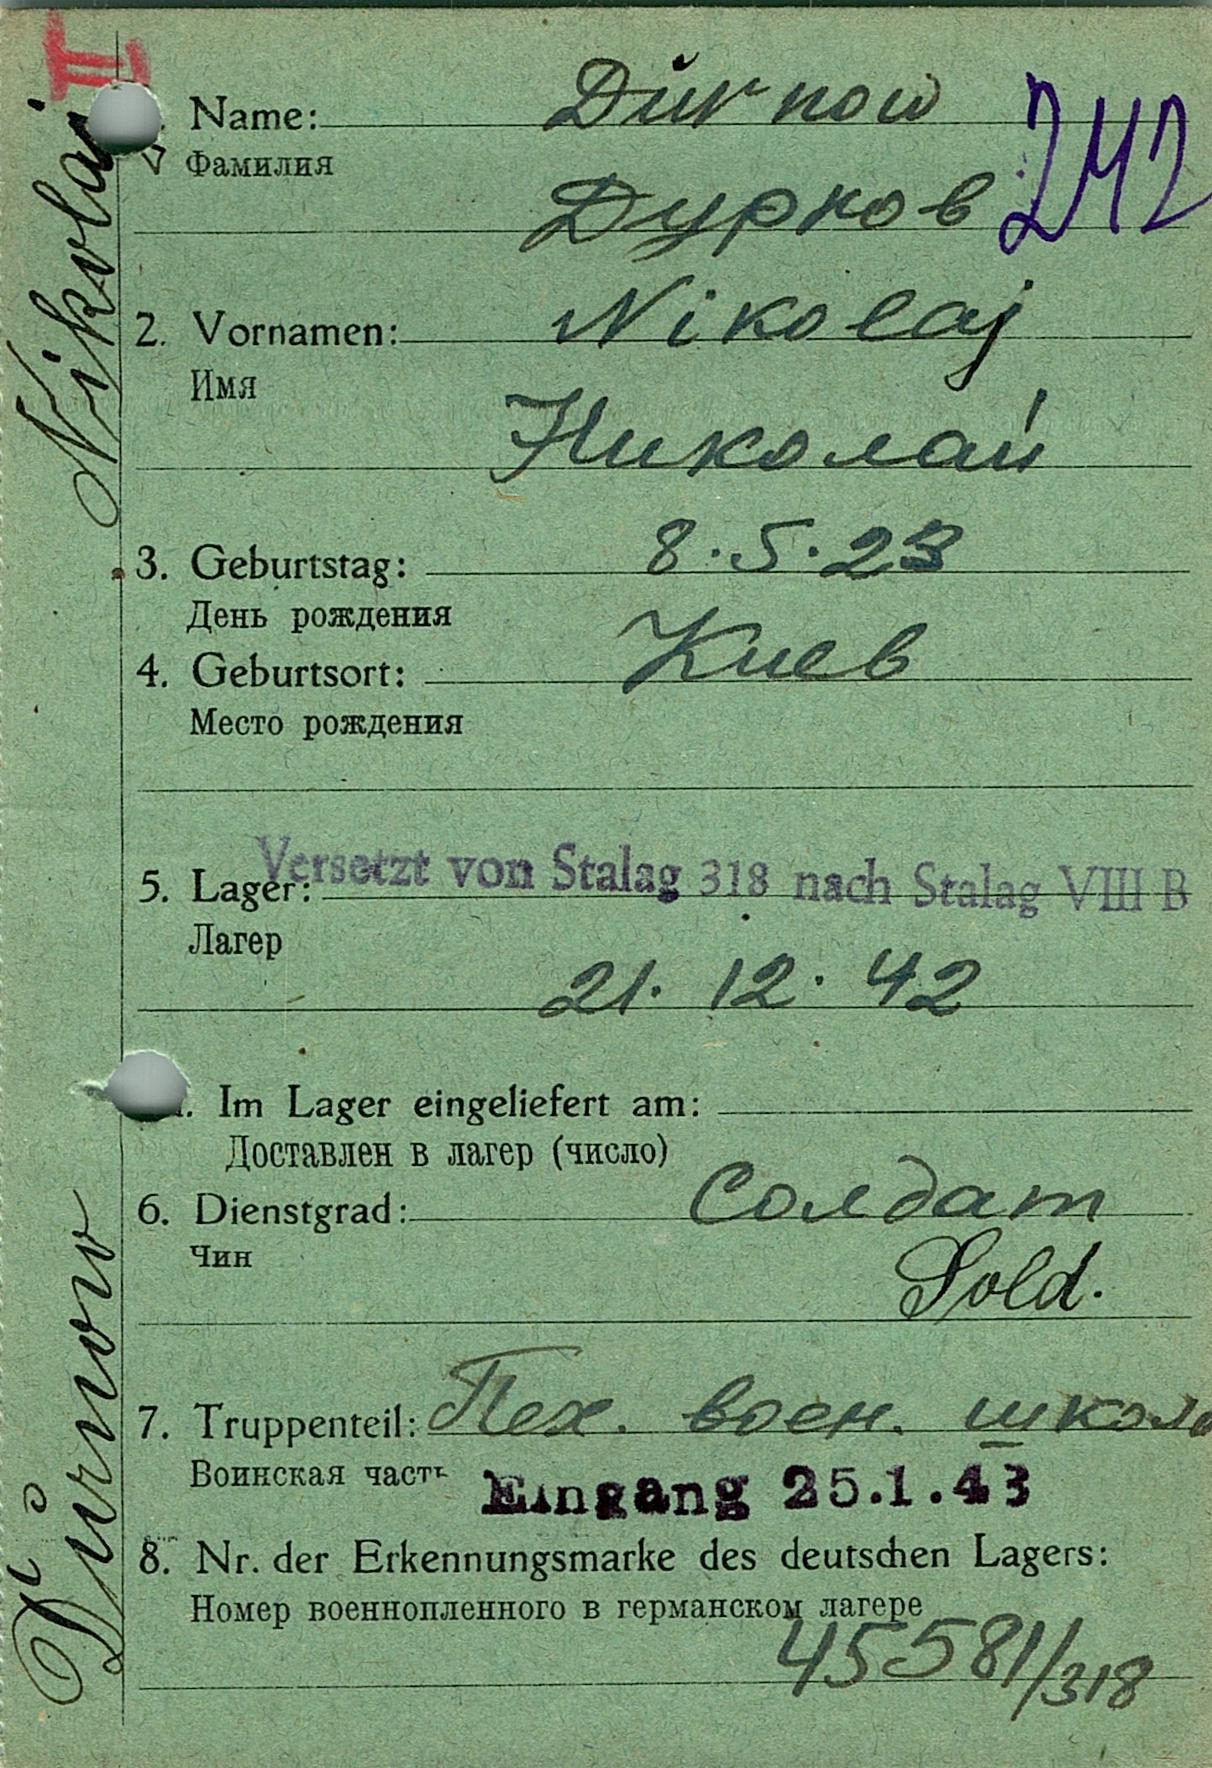 II
Name: Dŭrnow
Фамилия
242
Дурнов
2. Vornamen: Nikolaj
Имя
Николай
3. Geburtstag: 8.5.23
День рождения
4. Geburtsort: Киев
Место рождения
5. Lager: Versetzt von Stalag 318 nach Stalag VIII B
Лагер
21. 12. 42
Im Lager eingeliefert am:
Доставлен в лагер (число)
6. Dienstgrad: Солдат
Чин
Sold.
7. Truppenteil: Пех. воен. школа
Воинская часть
Eingang 25.1.43
8. Nr. der Erkennungsmarke des deutschen Lagers:
Номер военнопленного в германском лагере
45581/318
Dŭrnow Nikolai